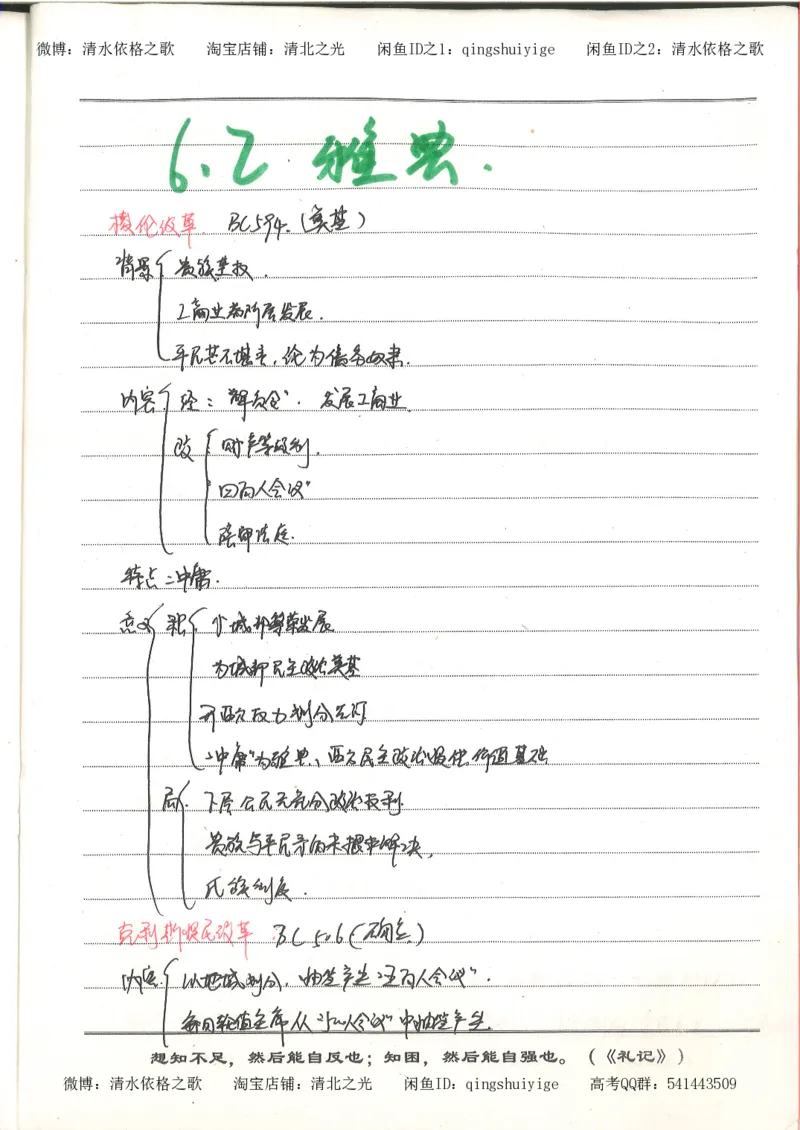 微博：清水依格之歌 淘宝店铺：清北之光 闲鱼ID之1：qingshuiyige 闲鱼ID之2：清水依格之歌
6.2 雅典.
梭伦改革 BC594.（奠基）
背景 贵族专权.
工商业者阶层发展.
平民苦不堪言，沦为债务奴隶.
内容 经："解负令". 发展工商业.
政 财产等级制.
"四百人会议"
陪审法庭.
特点：中庸.
意义 积 城邦繁荣发展
为城邦民主政治奠基
开西方权力制分先河
"中庸"为雅典、西方民主政治提供价值基础
局 下层公民无充分政治权利.
贵族与平民矛盾未根本解决.
氏族制度.
克利斯提尼改革 BC506（确立）
内容 以地域划分，抽签产生"五百人会议".
每日轮值主席从"五十人会议"中抽签产生.
想知不足，然后能自反也；知困，然后能自强也。（《礼记》）
微博：清水依格之歌 淘宝店铺：清北之光 闲鱼ID：qingshuiyige 高考QQ群：541443509